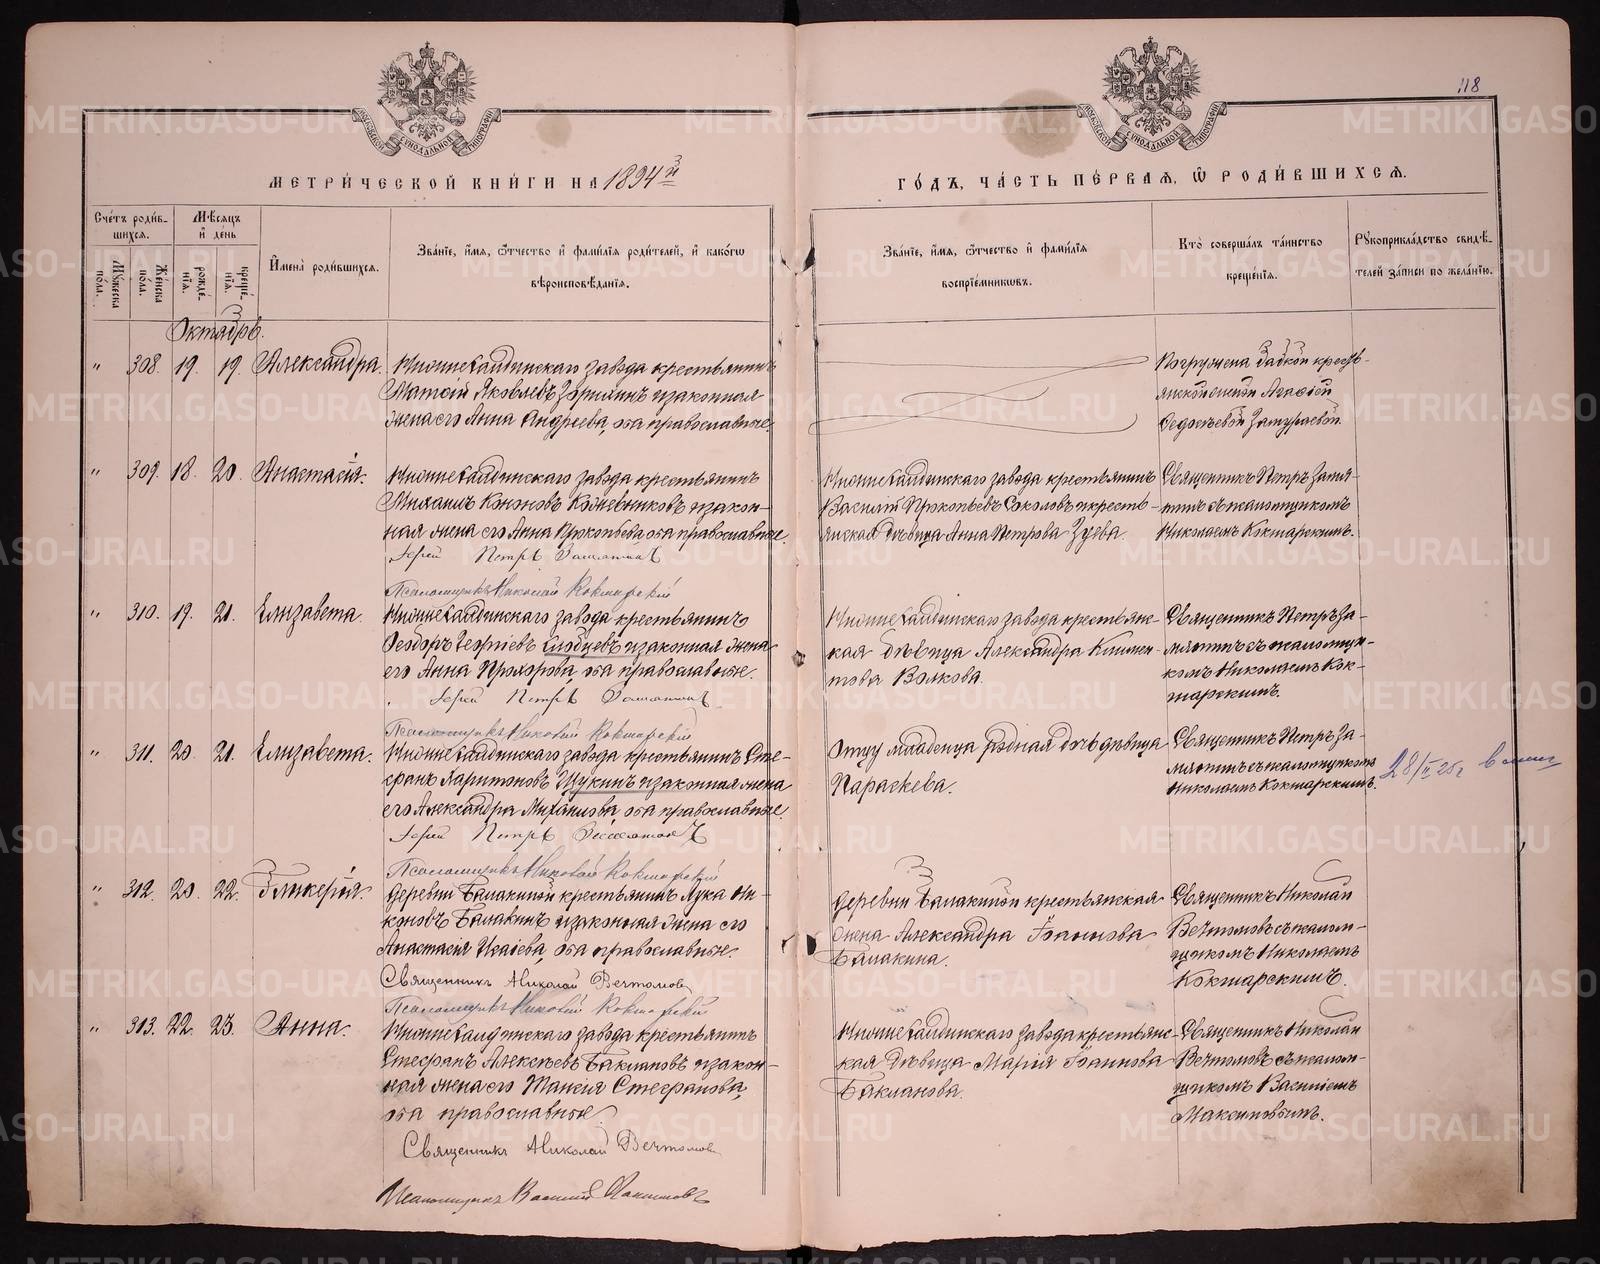 118
МЕТРИ́ЧЕСКОЙ КНИ́ГИ НА 1894й
ГО́ДЪ, ЧА́СТЬ ПЕ́РВАЯ, Ѡ РОДИ́ВШИХСЯ.
Сче́тъ роди́в-
шихся.
Му́жеска по́ла.
Же́нска по́ла.
Мѣ́сяцъ
и де́нь
рожде́-
нїя.
креще́-
нїя.
И́мена̀ роди́вшихся.
Зва́нїе, и́мя, ѻ҆́тчество и фами́лїя роди́телей, и како́гѡ
вѣроисповѣ́данїя.
Зва́нїе, и́мя, ѻ҆́тчество и фами́лїя
воспрїе́мникѡвъ.
Кто̀ соверша́лъ та́инство
креще́нїя.
Рꙋкоприкла́дство свидѣ́-
телей за́писи по жела́нїю.
Октябрь.
" 308. 19. 19. Александра.
Нижнесалдинскаго завода крестьянинъ
Матѳій Яковлевъ Зорихинъ и законная
жена его Анна Андреева, оба православные.
Погружена бабкой кресть-
янской женой Агаѳіей
Ѳедосѣевой
" 309. 18. 20. Анастасія.
Нижнесалдинскаго завода крестьянинъ
Михаилъ Кононовъ Кожевниковъ и закон-
ная жена его Анна Прокопьева, оба православные.
Іерей Петръ Замятинъ
Псаломщикъ Николай Кокшарскій
Нижнесалдинскаго завода крестьянинъ
Василій Прокопьевъ Соколовъ и кресть-
янская дѣвица Анна Петрова Зуева.
Священникъ Петръ Замя-
тинъ съ псаломщикомъ
Николаемъ Кокшарскимъ.
" 310. 19. 21. Елизавета.
Нижнесалдинскаго завода крестьянинъ
Ѳеодоръ Георгіевъ Слобцевъ и законная жена
его Анна Прохорова, оба православные.
Іерей Петръ Замятинъ
Псаломщикъ Николай Кокшарскій
Нижнесалдинскаго завода крестьянс-
кая дѣвица Александра Климен-
това Волкова.
Священникъ Петръ За-
мятинъ съ псаломщи-
комъ Николаемъ Кок-
шарскимъ.
" 311. 20. 21. Елизавета.
Нижнесалдинскаго завода крестьянинъ Сте-
фанъ Харитоновъ Щукинъ и законная жена
его Александра Михаилова, оба православные.
Іерей Петръ Замятинъ
Псаломщикъ Николай Кокшарскій
Отцу младенца родная дочь дѣвица
Параскева.
Священникъ Петръ За-
мятинъ съ псаломщикомъ
Николаемъ Кокшарскимъ.
28/II 25г
" 312. 20. 22. Гликерія.
Деревни Балакиной крестьянинъ Лука Ни-
коновъ Балакинъ и законная жена его
Анастасія Исаіева, оба православные.
Священникъ Николай Вечтомовъ
Псаломщикъ Николай Кокшарскій
Деревни Балакиной крестьянская
жена Александра Іоаннова
Балакина.
Священникъ Николай
Вечтомовъ съ псалом-
щикомъ Николаемъ
Кокшарскимъ.
" 313. 22. 23. Анна.
Нижнесалдинскаго завода крестьянинъ
Стефанъ Алексѣевъ Баклановъ и закон-
ная жена его Таисія Стефанова,
оба православные.
Священникъ Николай Вечтомовъ
Псаломщикъ Василій Максимовъ
Нижнесалдинскаго завода крестьянс-
кая дѣвица Марія Іоаннова
Бакланова.
Священникъ Николай
Вечтомовъ съ псалом-
щикомъ Василіемъ
Максимовымъ.
METRIKI.GASO-URAL.RU